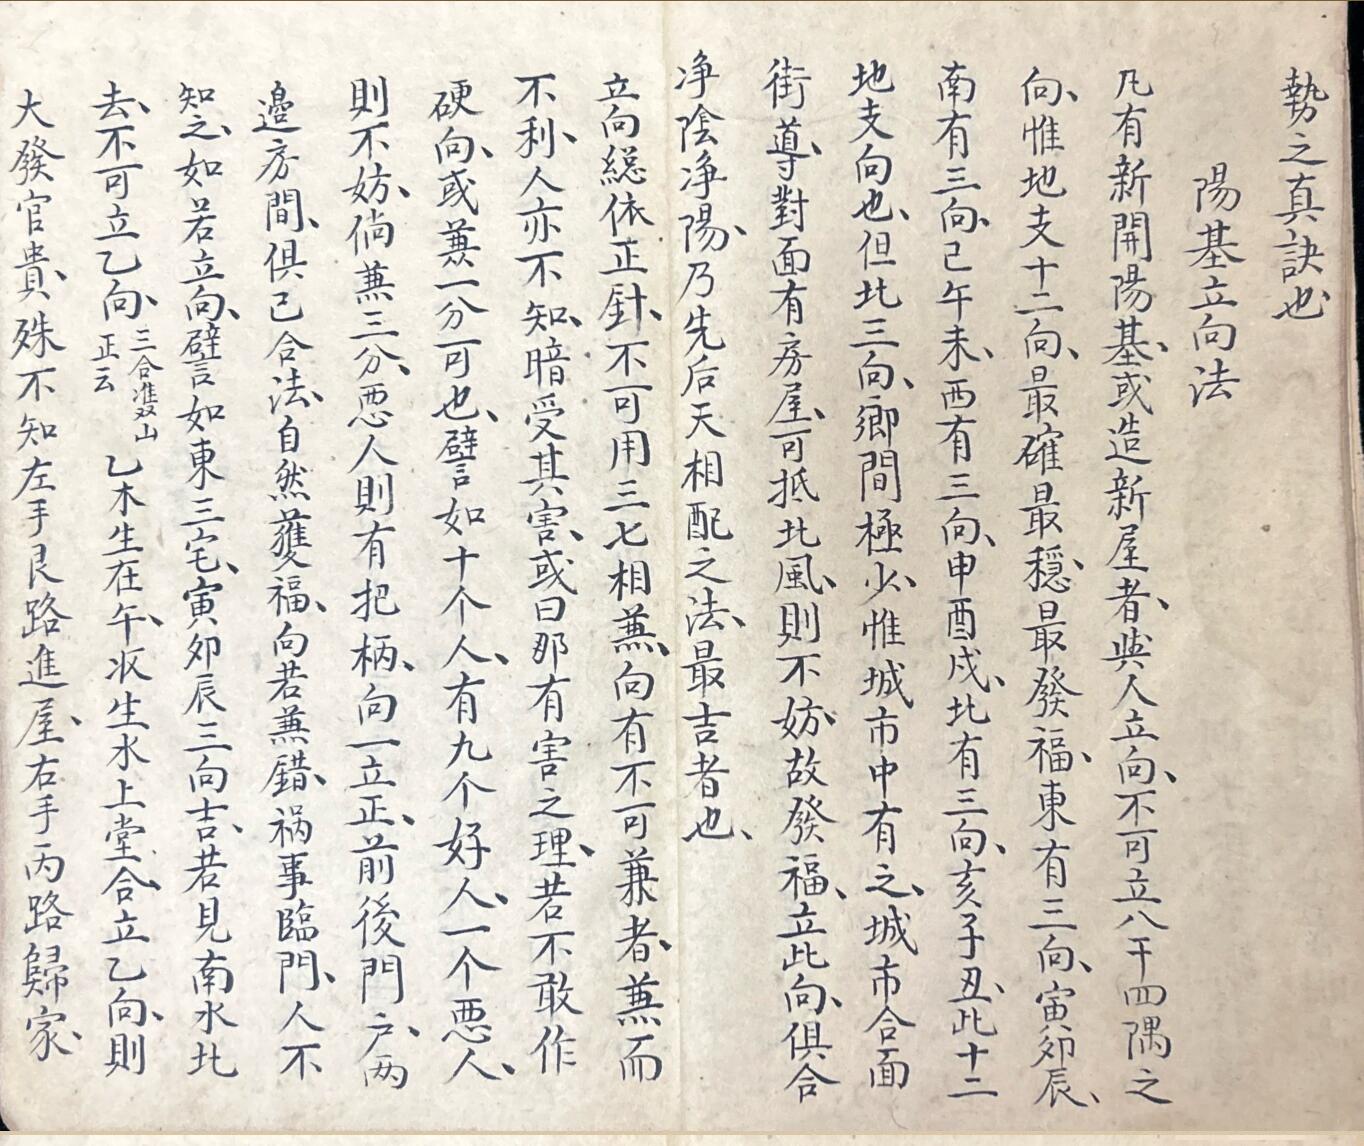 勢之真訣也
陽基立向法
凡有新開陽基、或造新屋者、與人立向、不可立八干四隅之
向、惟地支十二向、最確最穩、最發福、東有三向、寅夘辰、
南有三向、巳午未、西有三向、申酉戌、北有三向、亥子丑、此十二
地支向也、但北三向、鄉間極少、惟城市中有之、城市合面
街導、對面有房屋、可抵北風、則不妨、故發福、立此向、俱合
净陰净陽、乃先后天相配之法、最吉者也、
立向總依正針、不可用三七相兼、向有不可兼者、兼而
不利、人亦不知、暗受其害、或曰那有害之理、若不敢作
硬向、或兼一分可也、譬如十个人、有九个好人、一个惡人、
則不妨、倘兼三分、惡人則有把柄、向一立正、前後門户、两
邊房間、俱已合法、自然獲福、向若兼錯、祸事臨門、人不
知之、如若立向、譬如東三宅、寅夘辰三向吉、若見南水北
去、不可立乙向、三合准双山正云乙木生在午、収生水上堂、合立乙向、則
大發官貴、殊不知左手艮路進屋、右手丙路歸家、